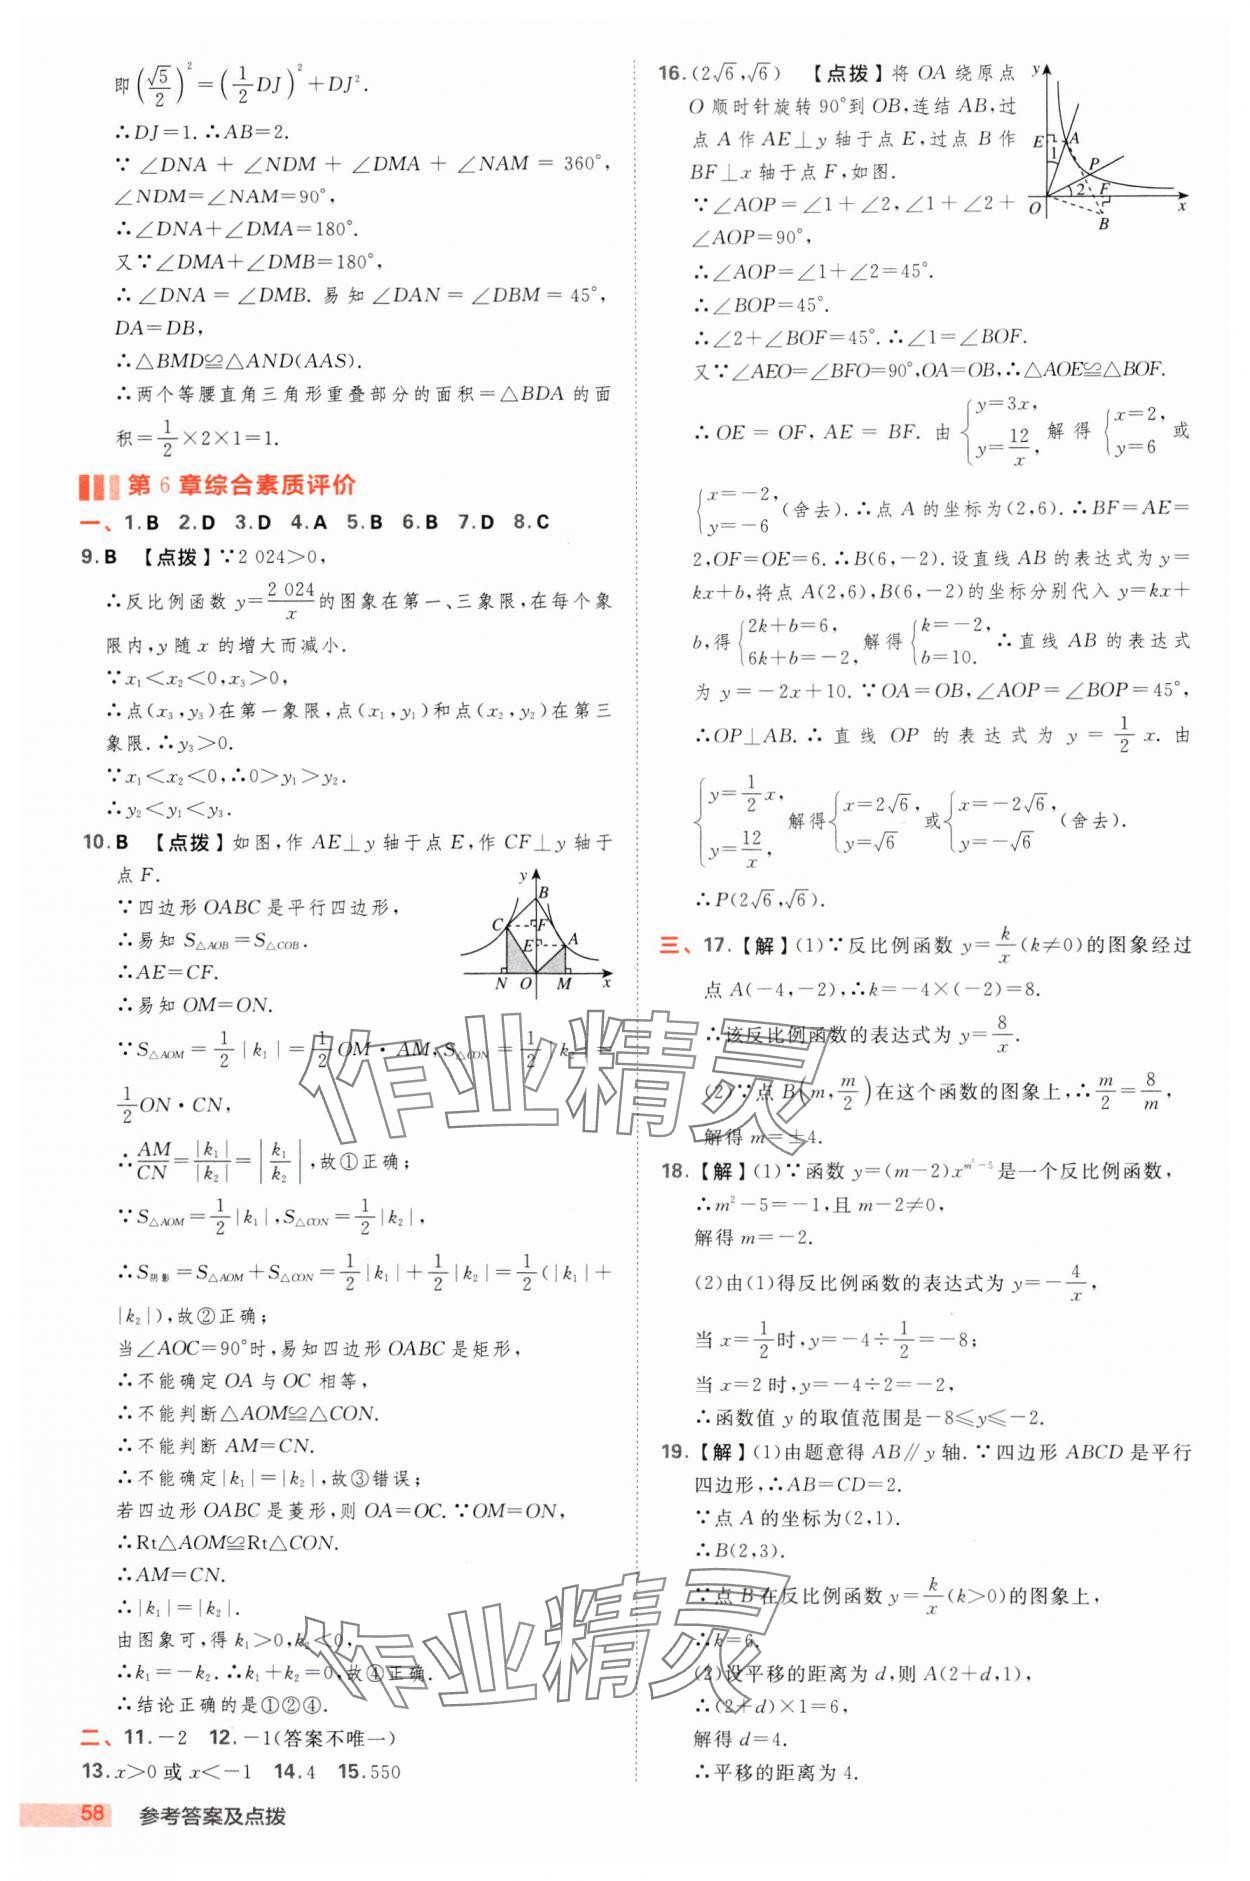 即(√5/2)²=(1/2 DJ)²+DJ².
∴DJ=1.∴AB=2.
∵∠DNA+∠NDM+∠DMA+∠NAM=360°,
∠NDM=∠NAM=90°,
∴∠DNA+∠DMA=180°.
又∵∠DMA+∠DMB=180°,
∴∠DNA=∠DMB.易知∠DAN=∠DBM=45°,
DA=DB,
∴△BMD≌△AND(AAS).
∴两个等腰直角三角形重叠部分的面积=△BDA的面
积=1/2×2×1=1.
第6章综合素质评价
一、1.B 2.D 3.D 4.A 5.B 6.B 7.D 8.C
9.B 【点拨】∵2 024>0,
∴反比例函数y=2 024/x的图象在第一、三象限,在每个象
限内,y随x的增大而减小.
∵x₁<x₂<0,x₃>0,
∴点(x₃,y₃)在第一象限,点(x₁,y₁)和点(x₂,y₂)在第三
象限.∴y₃>0.
∵x₁<x₂<0,∴0>y₁>y₂.
∴y₂<y₁<y₃.
10.B 【点拨】如图,作AE⊥y轴于点E,作CF⊥y轴于
点F.
∵四边形OABC是平行四边形,
∴易知S△AOB=S△COB.
∴AE=CF.
∴易知OM=ON.
y
B
C
F
E
A
N O M x
∵S△AOM=1/2|k₁|=1/2 OM·AM,S△CON=1/2|k₂|=
1/2 ON·CN,
∴AM/CN=|k₁|/|k₂|=|k₁/k₂|,故①正确;
∵S△AOM=1/2|k₁|,S△CON=1/2|k₂|,
∴S阴影=S△AOM+S△CON=1/2|k₁|+1/2|k₂|=1/2(|k₁|+
|k₂|),故②正确;
当∠AOC=90°时,易知四边形OABC是矩形,
∴不能确定OA与OC相等,
∴不能判断△AOM≌△CON.
∴不能判断AM=CN.
∴不能确定|k₁|=|k₂|,故③错误;
若四边形OABC是菱形,则OA=OC.∵OM=ON,
∴Rt△AOM≌Rt△CON.
∴AM=CN.
∴|k₁|=|k₂|.
由图象可,得k₁>0,k₂<0,
∴k₁=-k₂.∴k₁+k₂=0,故④正确.
∴结论正确的是①②④.
二、11.-2 12.-1(答案不唯一)
13.x>0或x<-1 14.4 15.550
16.(2√6,√6) 【点拨】将OA绕原点
O顺时针旋转90°到OB,连结AB,过
点A作AE⊥y轴于点E,过点B作
BF⊥x轴于点F,如图.
∵∠AOP=∠1+∠2,∠1+∠2+
∠AOP=90°,
y
E A
1
P
2 F
O B x
∴∠AOP=∠1+∠2=45°.
∴∠BOP=45°.
∴∠2+∠BOF=45°.∴∠1=∠BOF.
又∵∠AEO=∠BFO=90°,OA=OB,∴△AOE≌△BOF.
∴OE=OF,AE=BF.由{y=3x, y=12/x 解得{x=2, y=6 或
{x=-2, y=-6 (舍去).∴点A的坐标为(2,6).∴BF=AE=
2,OF=OE=6.∴B(6,-2).设直线AB的表达式为y=
kx+b,将点A(2,6),B(6,-2)的坐标分别代入y=kx+
b,得{2k+b=6, 6k+b=-2, 解得{k=-2, b=10. ∴直线AB的表达式
为y=-2x+10.∵OA=OB,∠AOP=∠BOP=45°,
∴OP⊥AB.∴直线OP的表达式为y=1/2 x.由
{y=1/2 x, y=12/x, 解得{x=2√6, y=√6 或{x=-2√6, y=-√6 (舍去).
∴P(2√6,√6).
三、17.【解】(1)∵反比例函数y=k/x(k≠0)的图象经过
点A(-4,-2),∴k=-4×(-2)=8.
∴该反比例函数的表达式为y=8/x.
(2)∵点B(m,m/2)在这个函数的图象上,∴m/2=8/m,
解得m=±4.
18.【解】(1)∵函数y=(m-2)x^(m²-5)是一个反比例函数,
∴m²-5=-1,且m-2≠0,
解得m=-2.
(2)由(1)得反比例函数的表达式为y=-4/x,
当x=1/2时,y=-4÷1/2=-8;
当x=2时,y=-4÷2=-2,
∴函数值y的取值范围是-8≤y≤-2.
19.【解】(1)由题意得AB∥y轴.∵四边形ABCD是平行
四边形,∴AB=CD=2.
∵点A的坐标为(2,1).
∴B(2,3).
∵点B在反比例函数y=k/x(k>0)的图象上,
∴k=6.
(2)设平移的距离为d,则A(2+d,1),
∴(2+d)×1=6,
解得d=4.
∴平移的距离为4.
作业精灵
作业精灵
58 参考答案及点拨